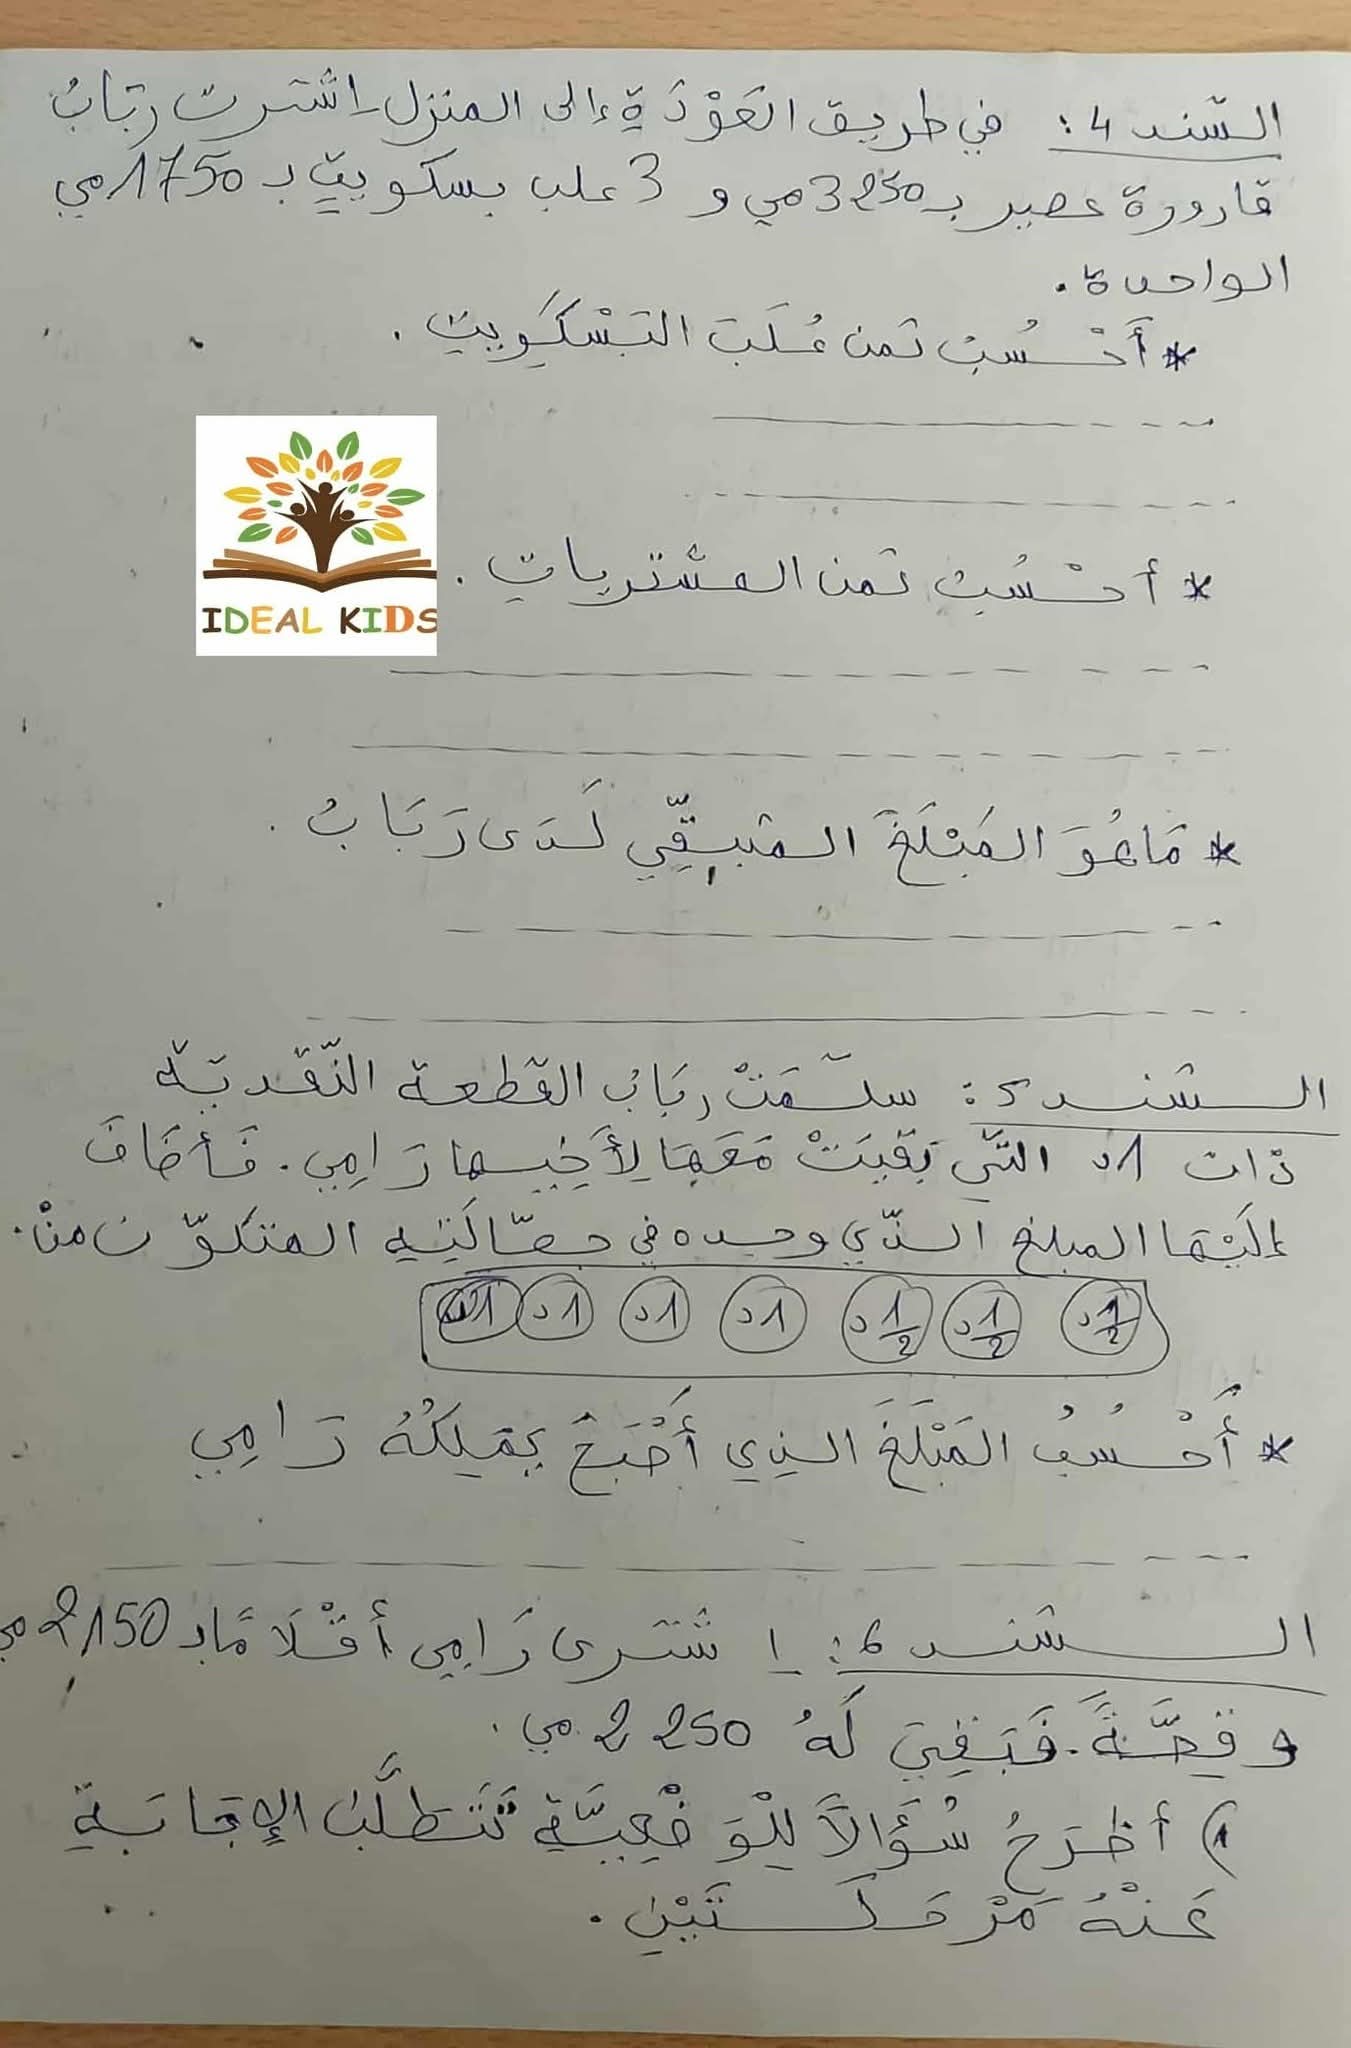 السّند 4: في طريق العَوْدَةِ إلى المنزل اشترت رَبَابُ
قارورة عصير بـ 3250 مي و 3 علب بسكويت بـ 1750 مي
الواحدة.
* أَحْسُبُ ثمن عُلَبَ البَسْكَوِيت.
IDEAL KIDS
* أحْسُبُ ثمن المشتريات.
* مَا هُوَ المَبْلَغَ المتبقِّي لَدَى رَبَابُ.
السّند 5: سلّمَتْ ربَابُ القطعة النّقديّة
ذات 1د التّي بَقِيَتْ مَعَهَا لِأَخِيها رَامِي. فَأضَافَ
إلَيْهَا المبلغ الذّي وجده في حصّالَتِهِ المتكوّن منْ.
1/2 د 1/2 د 1/2 د 1د 1د 1د 1د
* أُحْسُبُ المَبْلَغَ الذِي أَصْبَحَ يَمْلِكُهُ رَامِي
السّند 6: اشترى رَامِي أقْلَامًا بـ 2150 مي
و قِصَّةً. فَبَقِيَ لَهُ 2250 مي.
1) أطْرَحُ سُؤَالاً لِلْوَضْعِيَّةِ تَتَطَلَّبُ الإِجَابَةِ
عَنْهُ مَرْحَلَتَيْنِ.